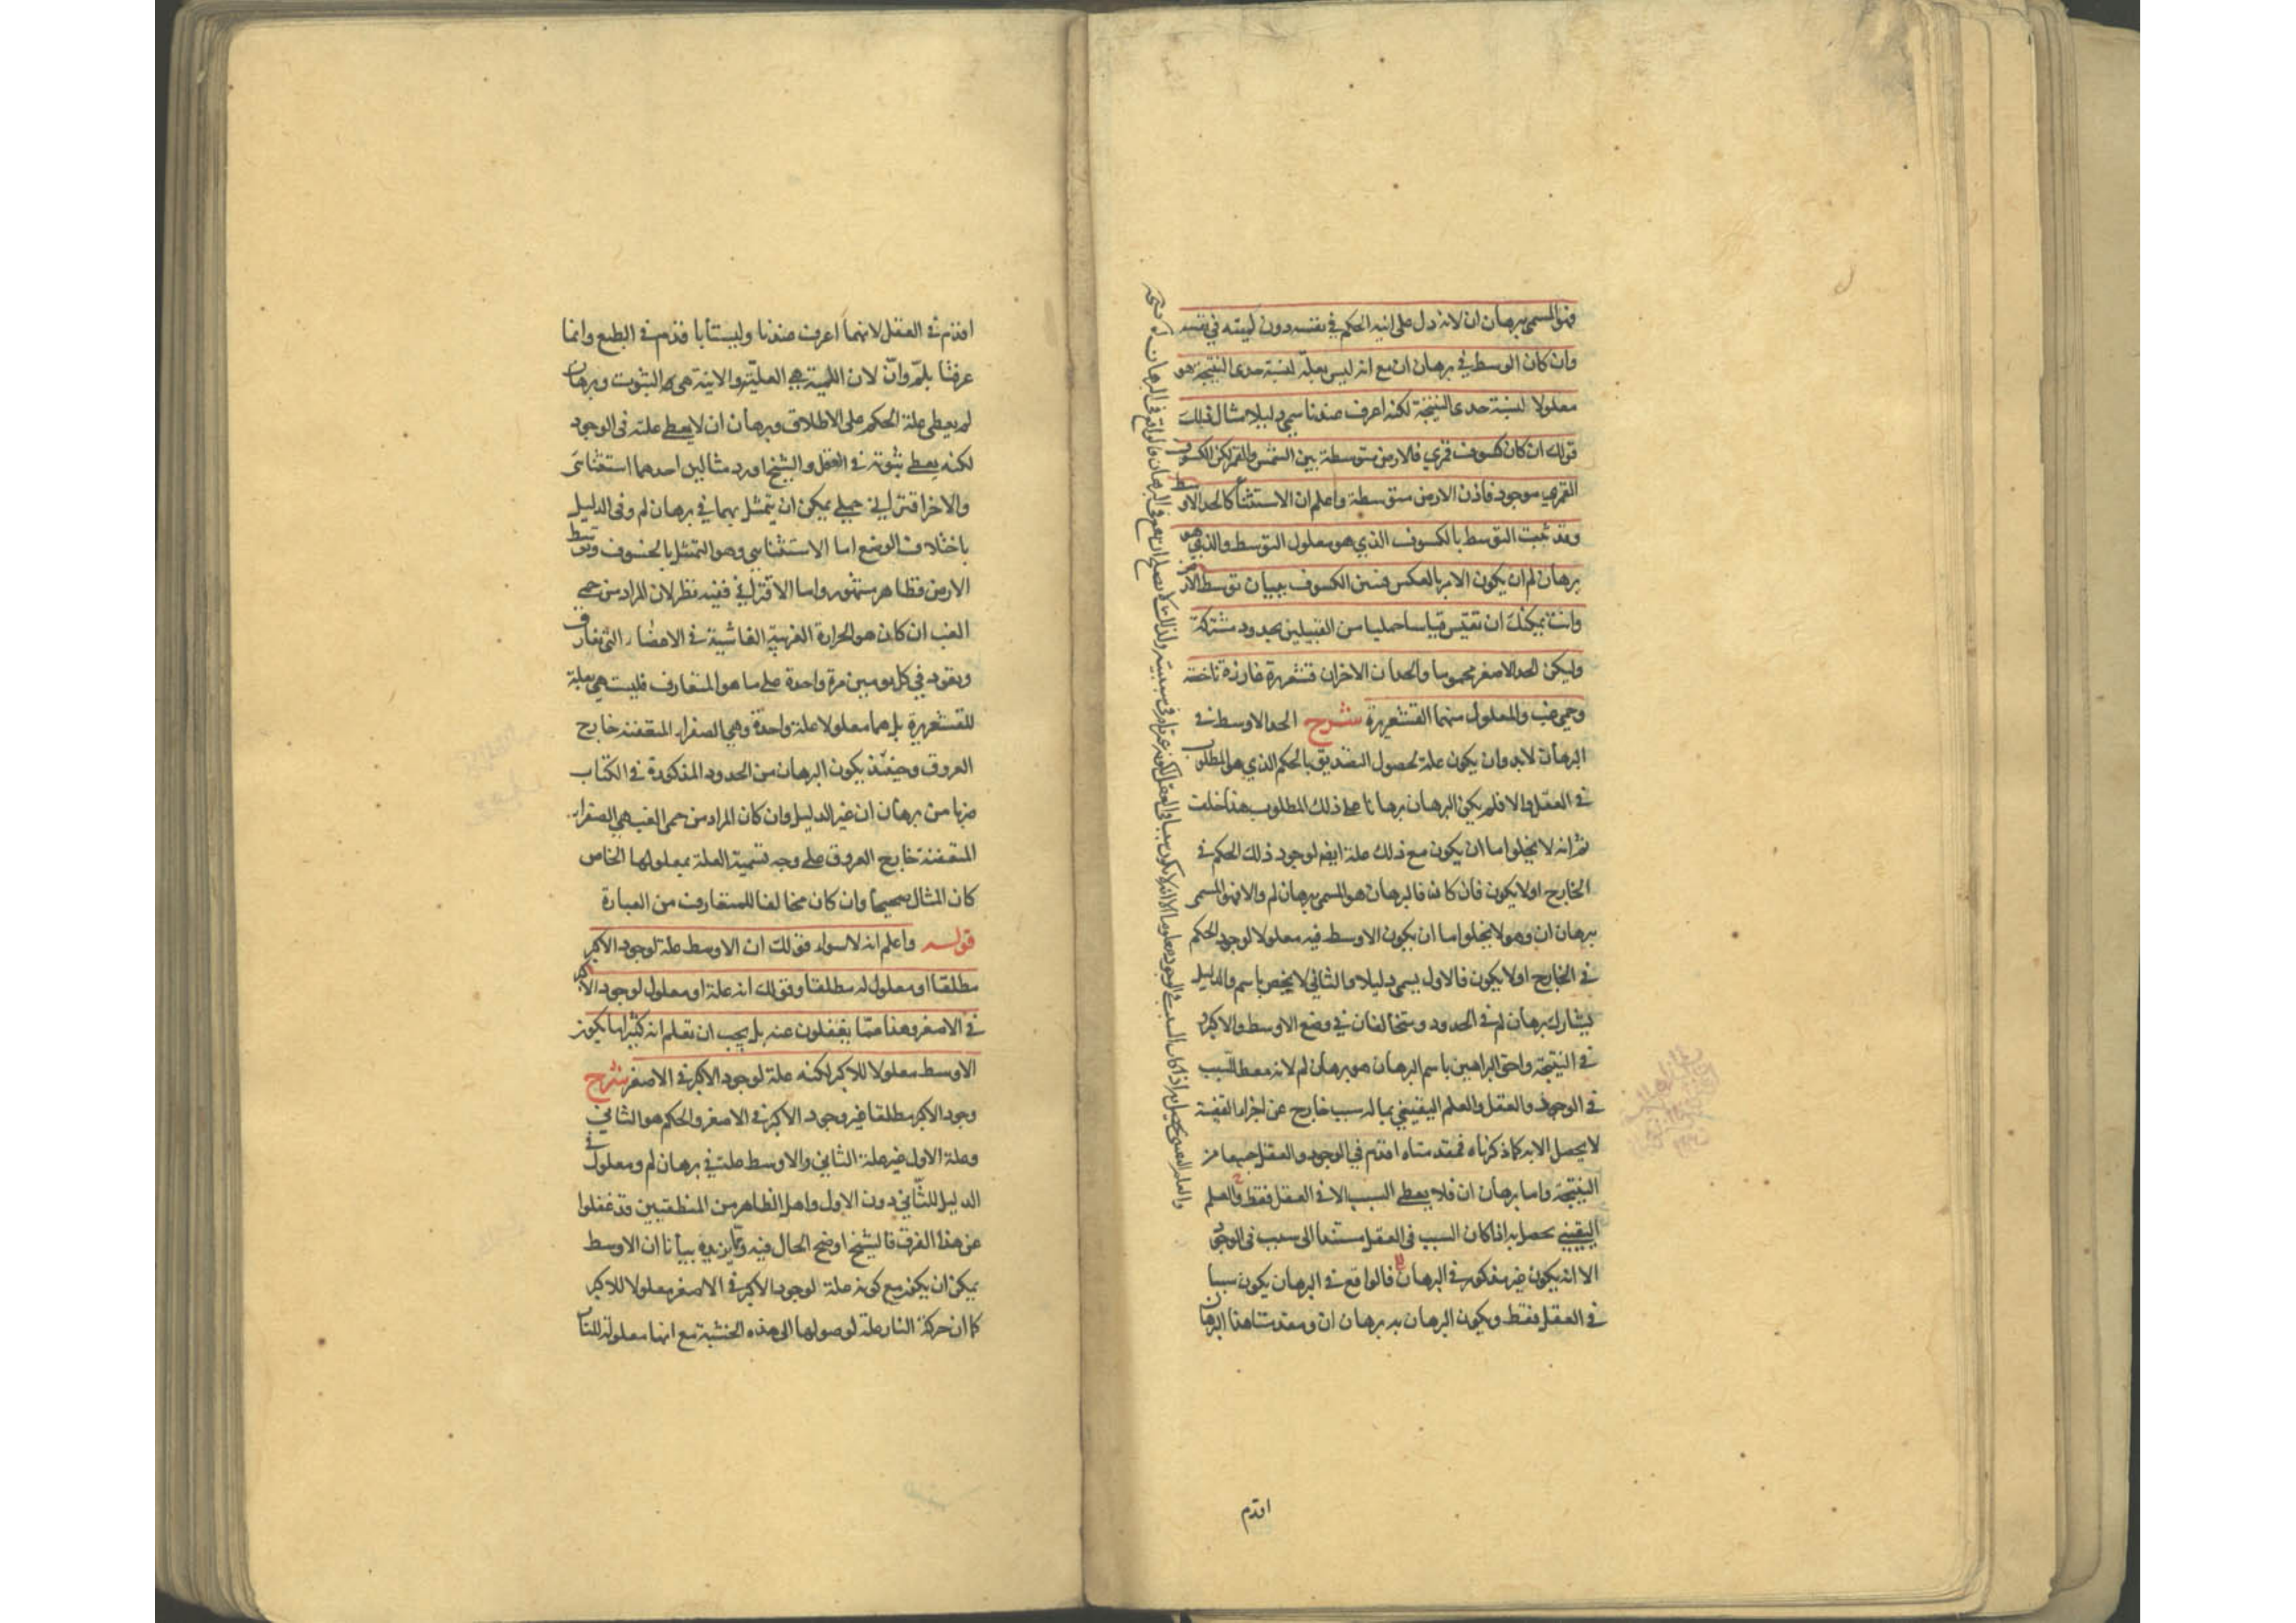 فهو المسمى ببرهان ان لانه دل على انية الحكم في نفسه دون لميته في نفسه
وان كان الوسط في برهان ان مع انه ليس بعلة لنسبة حدى النتيجة هو
معلولا لنسبة حدى النتيجة لكنه اعرف عندنا سمى دليلا مثال ذلك
قولك ان كان كسوف قمري فالارض متوسطة بين الشمس والقمر لكن الكسوف
القمري موجود فاذن الارض متوسطة واعلم ان الاستثنا كالحد الاوسط
وقد ثبت التوسط بالكسوف الذي هو معلول التوسط والذي هو
برهان لم ان يكون الامر بالعكس فنبين الكسوف ببيان توسط الارض
وانت يمكنك ان تقيس قياسا حمليا من القبيلين بحدود مشتركة
وليكن الحد الاصغر محموما والحدان الاخران قشعريرة غارزة ناخسة
وحمى غب والمعلول منهما القشعريرة شرح الحد الاوسط في
البرهان لا بد وان يكون علة لحصول التصديق بالحكم الذي هو المطلوب
في العقل والا فلم يكن البرهان برهانا على ذلك المطلوب هذا خلف
ثم انه لا يخلوا ما ان يكون مع ذلك علة ايضا لوجود ذلك الحكم في
الخارج اولا يكون فان كان فالبرهان هو المسمى ببرهان لم والا فهو المسمى
ببرهان ان وهو لا يخلوا ما ان يكون الاوسط فيه معلولا لوجود الحكم
في الخارج اولا يكون فالاول يسمى دليلا والثاني لا يخص باسم والدليل
يشارك برهان لم في الحدود ويتخالفان في وضع الاوسط والاكبر و
في النتيجة واحق البراهين باسم البرهان هو برهان لم لانه معط للسبب
في الوجود والعقل والعلم اليقيني بما له سبب خارج عن اجزاء القضية
لا يحصل الا به كما ذكرناه فمقدمتاه اقدم في الوجود والعقل جميعا من
النتيجة واما برهان ان فلا يعطى السبب الا في العقل فقط والعلم
اليقيني يحصل به اذا كان السبب في العقل مستندا الى سبب في الوجود
الا انه يكون غير مذكور في البرهان فالواقع في البرهان يكون سببا
في العقل فقط ويكون البرهان به برهان ان ومقدمتا هذا البرهان
اقدم
اقدم في العقل لانهما اعرف عندنا وليستا باقدم في الطبع وانما
عرفنا بلم وان لان اللمية هي العلية والانية هي الثبوت وبرهان
لم يعطى علة الحكم على الاطلاق وبرهان ان لا يعطى علته في الوجود
لكنه يعطى ثبوته في العقل والشيخ اورد مثالين احدهما استثنائي
والاخر اقتراني حملي يمكن ان يتمثل بهما في برهان لم وفي الدليل
باختلاف الوضع اما الاستثنائي وهو التمثيل بالخسوف وتوسط
الارض فظاهر مشهور واما الاقتراني ففيه نظر لان المراد من حمى
الغب ان كان هو الحرارة الغريبة الفاشية في الاعضاء التي تفارق
وتعود في كل يومين مرة واحدة على ما هو المتعارف فليست هي بعلة
للقشعريرة بل هما معلولا علة واحدة وهي الصفراء المتعفنة خارج
العروق وحينئذ يكون البرهان من الحدود المذكورة في الكتاب
ضربا من برهان ان غير الدليل وان كان المراد من حمى الغب هي الصفراء
المتعفنة خارج العروق على وجه تسمية العلة بمعلولها الخاص
كان المثال صحيحا وان كان مخالفا للمتعارف من العبارة
قوله واعلم انه لا سواء قولك ان الاوسط علة لوجود الاكبر
مطلقا او معلول له مطلقا وقولك انه علة او معلول لوجود الاكبر
في الاصغر وهذا مما يغفلون عنه بل يجب ان تعلم انه كثيرا ما يكون
الاوسط معلولا للاكبر لكنه علة لوجود الاكبر في الاصغر شرح
وجود الاكبر مطلقا غير وجود الاكبر في الاصغر والحكم هو الثاني
وعلة الاول غير علة الثاني والاوسط علة في برهان لم ومعلول في
الدليل للثاني دون الاول واهل الظاهر من المنطقيين قد غفلوا
عن هذا الفرق فالشيخ اوضح الحال فيه ومما يزيده بيانا ان الاوسط
يمكن ان يكون مع كونه علة لوجود الاكبر في الاصغر معلولا للاكبر
كما ان حركة النار علة لوصولها الى هذه الخشبة مع انها معلولة للنار